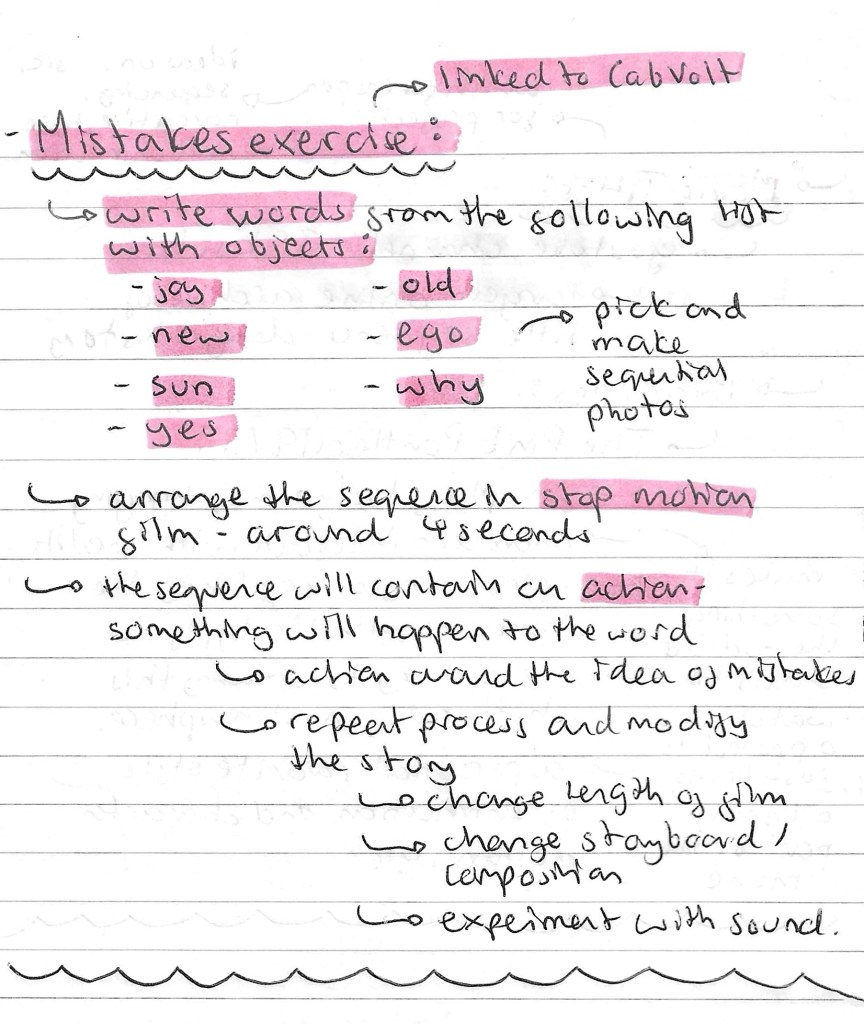 → linked to CabVolt
- Mistakes exercise:
↳ write words from the following list
with objects:
- joy - old
- new - ego → pick and
make
- sun - why sequential
photos
- yes
↳ arrange the sequence in stop motion
film - around 4 seconds
↳ the sequence will contain an action-
something will happen to the word
↳ action around the idea of mistakes
↳ repeat process and modify
the story
↳ change length of film
↳ change storyboard /
composition
↳ experiment with sound.